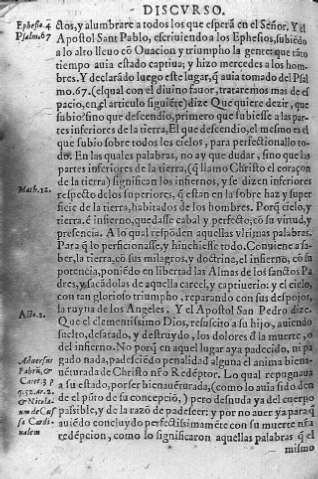 DISCVRSO.
Ephesis. 4
Psalm. 67
ctos, y alumbrare a todos los que esperã en el Señor. Y el
Apostol Sant Pablo, escriuiendo a los Ephesios, subiēdo
a lo alto lleuo cõ Ouacion y triumpho la gente que tãto
tiempo auia estado captiua; y hizo mercedes a los hom-
bres. Y declarãdo luego este lugar, q̃ auia tomado del Psal
mo. 67. (el qual con el diuino fauor, trataremos mas de es
pacio, en el articulo siguiẽte) dize Que quiere dezir, que
subio? sino que descendio, primero que subiesse a las par-
tes inferiores de la tierra, El que descendio, el mesmo es el
que subio sobre todos los cielos, para perfectionallo to-
do. En las quales palabras, no ay que dudar, sino que las
Math. 12.
partes inferiores de la tierra, (q̃ llamo Christo el coraçon
de la tierra) significan los infiernos, y se dizen inferiores
respecto de los superiores, q̃ estan en la sobre haz y super
ficie de la tierra, habitados de los hombres. Porq̃ cielo, y
tierra, é infierno, quedasse cabal y perfecto, cõ su virtud, y
presencia. A lo qual respõden aquellas vltimas palabras.
Para q̃ lo perficionasse, y hinchiesse todo. Conuiene a sa-
ber, la tierra, cõ sus milagros, y doctrina, el infierno, cõ su
potencia, poniẽdo en libertad las Almas de los sanctos Pa
dres, y sacãdolas de aquella carcel, y captiuerio: y el cielo,
con tan glorioso triumpho, reparando con sus despojos,
Acto. 2.
la ruyna de los Angeles. Y el Apostol San Pedro dize.
Que el clementissimo Dios, resuscito a su hijo, auiendo
suelto, desatado, y destruydo, los dolores d̃ la muerte, o
del infierno. No porq̃ en aquel lugar aya padecido, ni pa
Aduersus
gado nada, padesciẽdo penalidad alguna el anima bien-
Fabrũ, &
auēturada de Christo nr̃o Redẽptor. Lo qual repugnaua
a su estado, por ser bienauẽturada, (como lo auia sido den
de el pũto de su concepciõ,) pero desnuda ya del cuerpo
& Nicola-
um de Cus
passible, y de la razõ de padeser: y por no auer ya para q̃
sa Cardi-
auiẽdo concluydo perfectissimamẽte con su muerte nr̃a
nalem
redẽpcion, como lo significaron aquellas palabras q̃ el
mismo